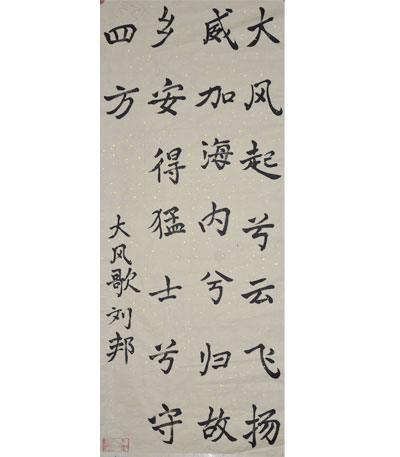 大风起兮云飞扬
威加海内兮归故
乡安得猛士兮守
四方
大风歌刘邦